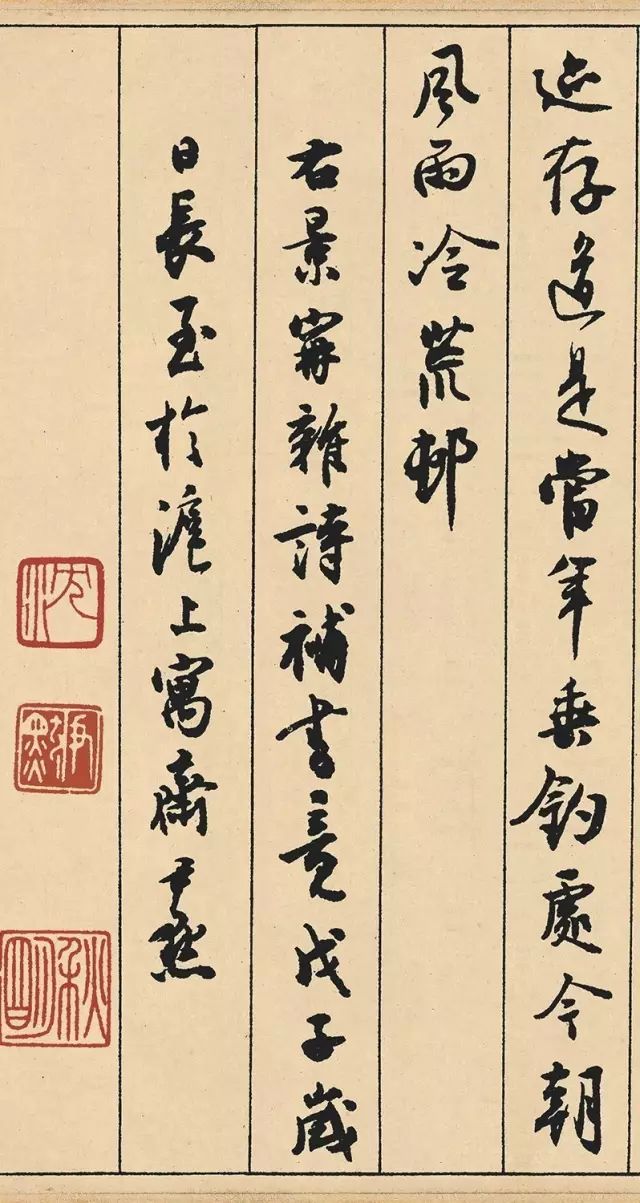 迹存道是當年垂釣處今朝
風雨冷荒邨
右景甯雜詩補書竟戊子歲
日長至於滬上寓齋尹默
沈
秋明